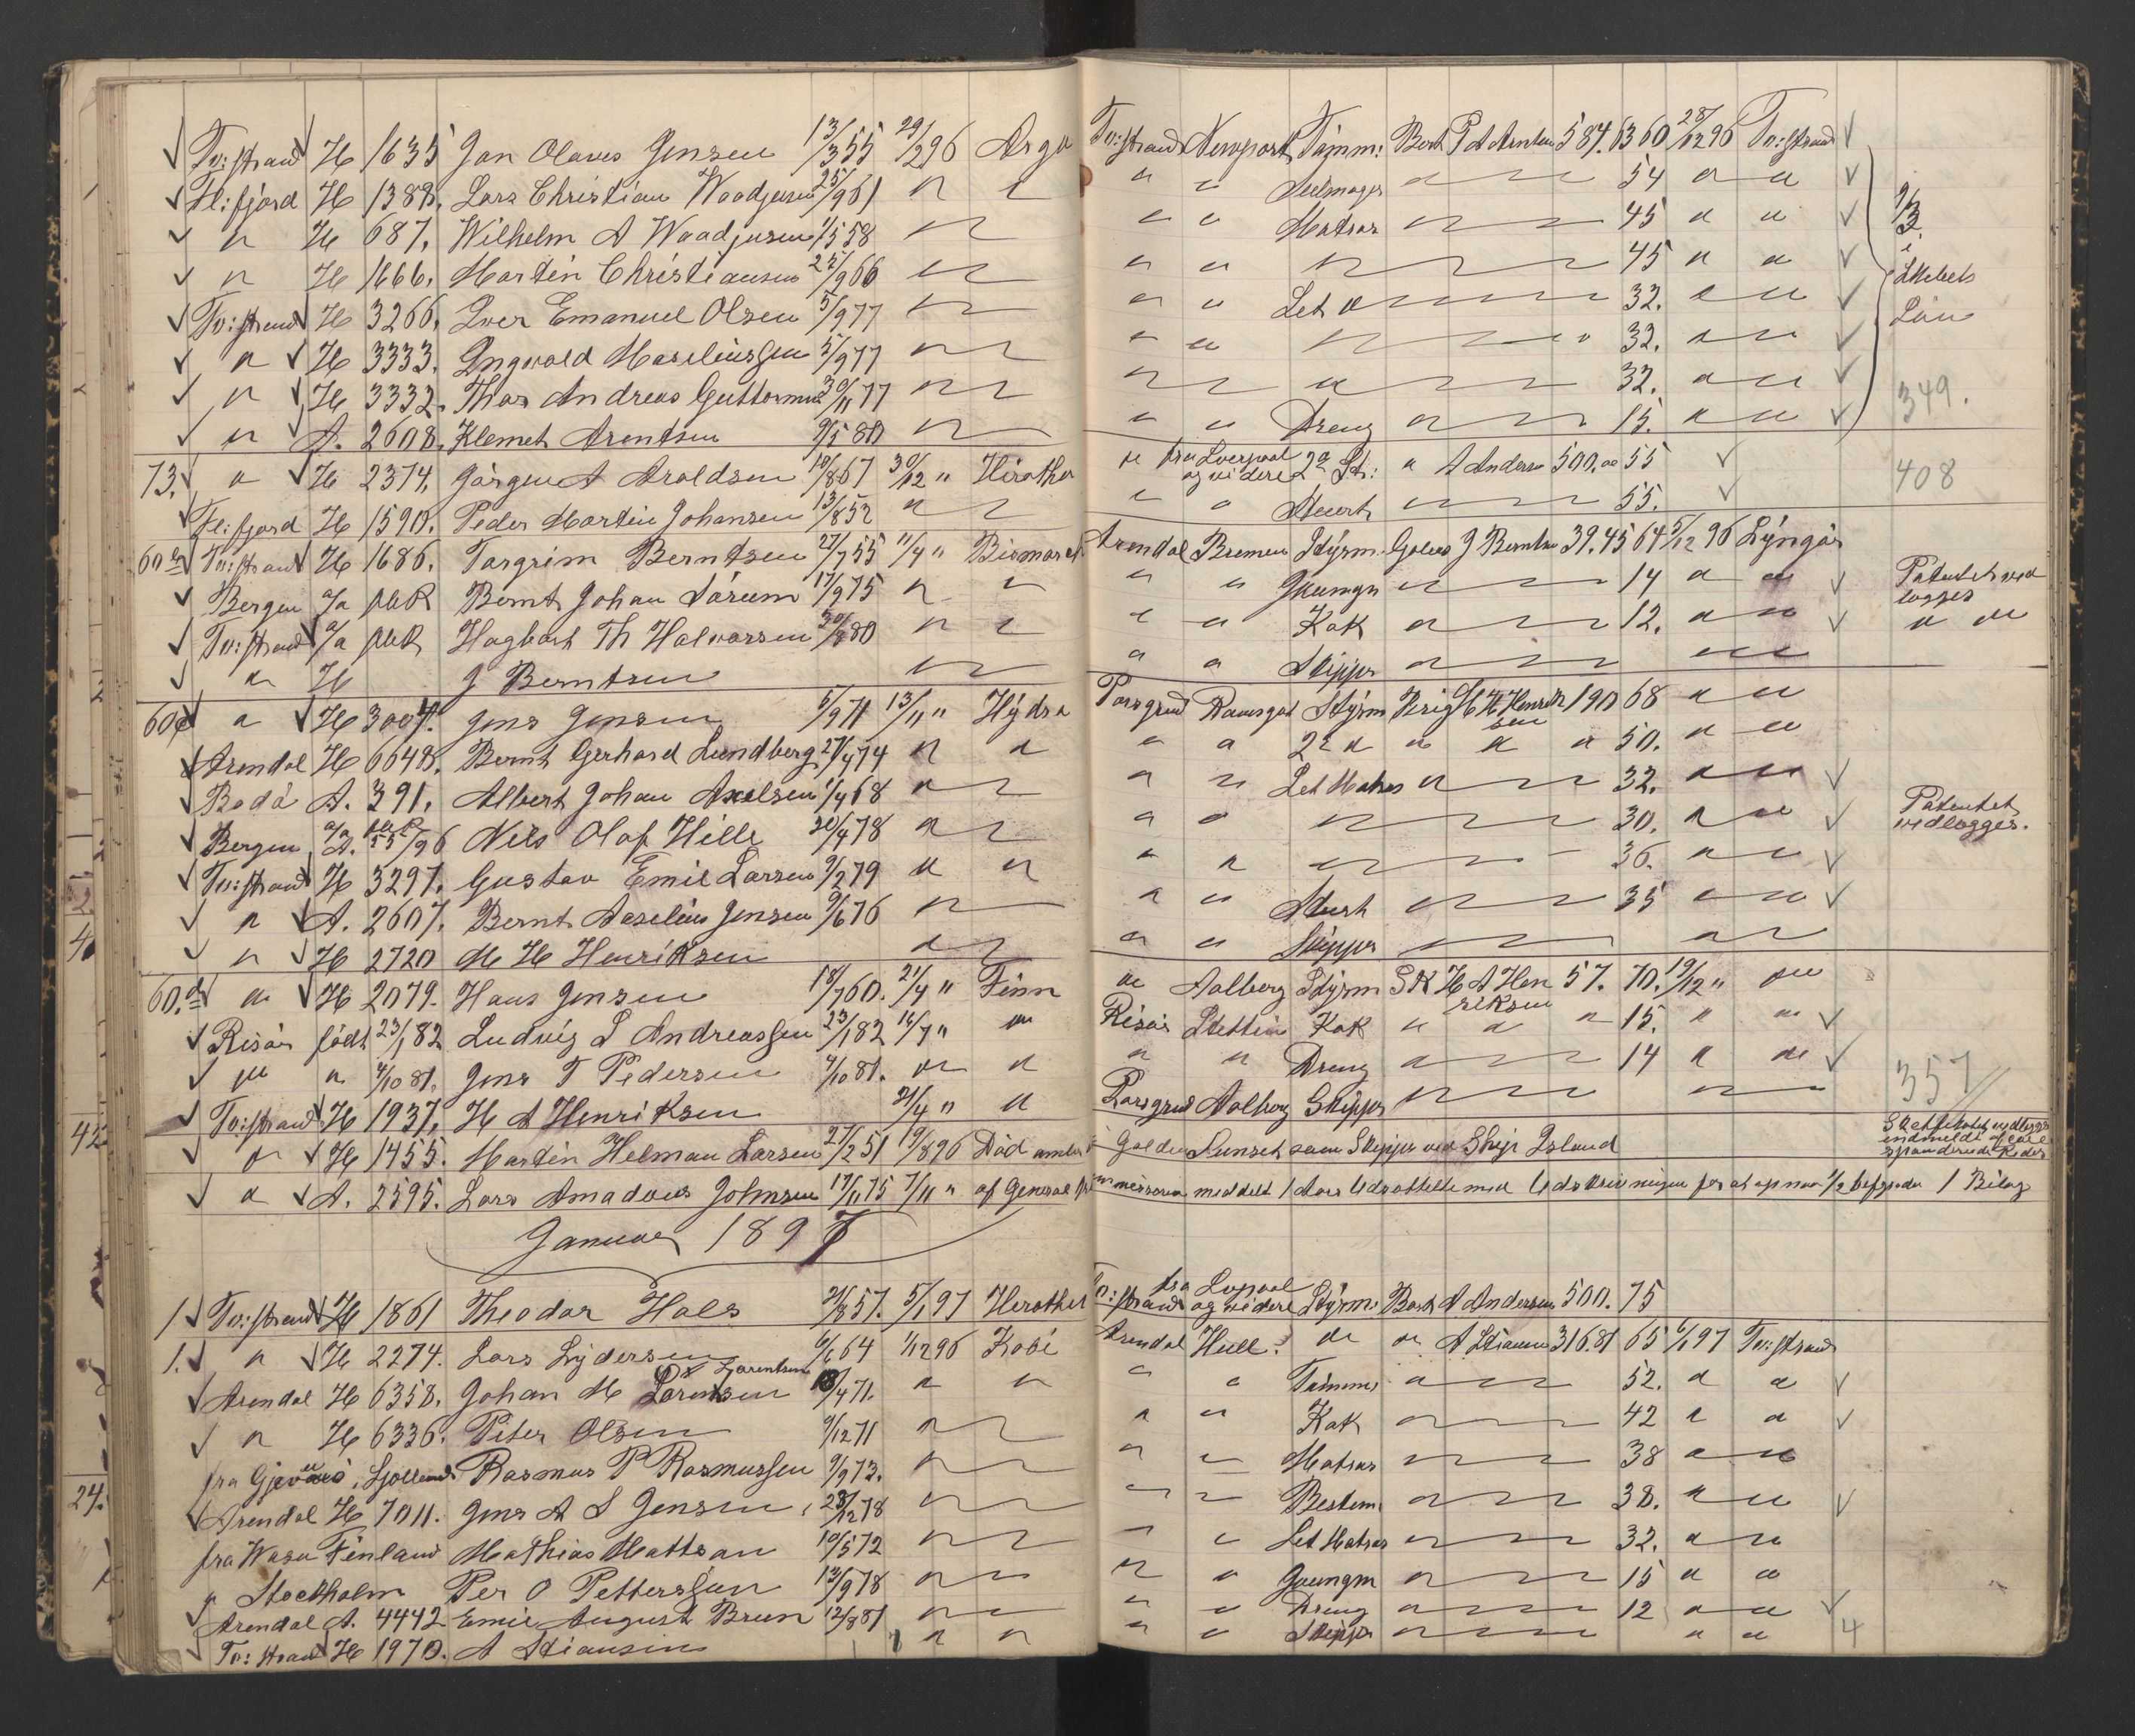 Tv:strand H 1635 Jan Olaves Jensen 13/3 55 29/2 96 Argo Tv:strand Newport Tømm: Bark P A Arntsen 584.63 60 28/12 96 Tv:strand
Fl:fjord H 1388. Lars Christian Waadjesen 25/9 61 " " " " Seilmager " 54 " "
" H 687. Wilhelm A Waadjesen 1/5 58 " " " Matros " 45 " "
" H 1666. Martin Christiansen 25/9 66 " " " " 45 " "
Tv:strand H 3266. Iver Emanuel Olsen 5/9 77 " " " Let " 32. " "
" H 3333. Ingvald Maseliussen 5/9 77 " " " " 32. " "
" H 3332. Thor Andreas Guttormsen 30/11 77 " " " " 32. " "
" A. 2608. Klemet Arentsen 9/5 80 " " " Dreng " 15. " "
9/3 i Skibets Lån
349.
73. " H 2374. Jørgen A Aroldsen 10/8 67 30/12 " Hirother " fra Liverpool og videre 2den St: " A Andersen 500.00 55
408
Fl:fjord H 1590. Peder Martin Johansen 13/8 52 " " " Stuert " 55.
60 b Tv:strand H 1686. Torgrim Berntsen 27/7 55 11/4 " Bismarck Arendal Bremen Styrm. Galeas J Berntsen 39.45 64 5/12 96 Lyngør
Bergen a/a paR Bernt Johan Sørum 17/9 75 " " " " Jeungm " 14 " " Patentet vedlægges
Tv:strand a/a paR Hagbart Th Halvorsen 30/8 80 " " " " Kok " 12. " " " "
" H J Berntsen " " " Skipper " "
60 c " H 3004. Jens Jensen 5/9 71 13/11 " Hydra Porsgrund Ramsgat Styrm Brig M H Henriksen 190 68 " "
Arendal H 6648. Bernt Gerhard Lundberg 27/4 74 " " " " 2den " " " " 50. " "
Bodø A. 391. Albert Johan Axelsen 1/4 68 " " " Let Matros " 32. " "
Bergen a/a A. paR 55/96 Nils Olaf Hille 20/4 78 " " " " 30. " " Patentet vedlægges.
Tv:strand H 3297. Gustav Emil Larsen 9/2 79 " " " " " 36. " "
" A. 2607. Bernt Aaselius Jensen 9/6 76 " " " Stuert " 35 " "
" H 2720 M H Henriksen " " " Skipper " "
60. d " H 2079. Hans Jensen 18/7 60. 21/4 " Finn " Aalborg Styrm SK H A Henriksen 57. 70. 19/12 " "
Risør født 23/1 82 Ludvig S Andreassen 23/1 82 16/7 " " Risør Stettin Kok " " " 15. " "
" " 4/10 81. Jens T Pedersen 4/10 81. " " " " Dreng " 14 " "
357
Tv:strand H 1937. H A Henriksen 21/4 " " Porsgrund Aalborg Skipper " "
" H 1455. Martin Helman Larsen 27/2 51 19/8 96 Død ombord i Golden Sunset som Skipper ved Island
" A. 2595. Lars Amadeus Johnsen 17/11 75 7/11 " af General meddelt 1 Aars Udsættelse med Udskrivningen 1 Bilag
Januar 1897
1 Tv:strand H 1861 Theodor Hals 21/8 57. 5/1 97 Herother Tv:strand fra Liverpool og videre Styrm. Bark A Andersen 500. 75
1. " H 2274. Lars Lydersen 6/6 64 1/12 96 Kobi Arendal Hull. " " A Stiansen 316.81 65 6/1 97 Tv:strand
Arendal H 6358. Johan M Larentsen 18/4 71. " " " " Tømmer " 52. " "
" H 6336. Peter Olsen 9/12 71 " " " Kok " 42 " "
fra Gjevøe i Sjelland Rasmus P Rasmussen 9/9 73. " " " Matros " 38 " "
Arendal H 7011. Jens A S Jensen 23/12 78 " " " Bestem. " 38. " "
fra Wasa Finland Mathias Mattson 10/5 72 " " " Let Matros " 32. " "
" Stockholm Per O Pettersson 13/9 78 " " " Jeungm " 15 " "
Arendal A. 4442 Emil August Brun 12/8 81 " " " Dreng " 12 " "
Tv:strand H 1970. A Stiansen " " " " Skipper " " " 4